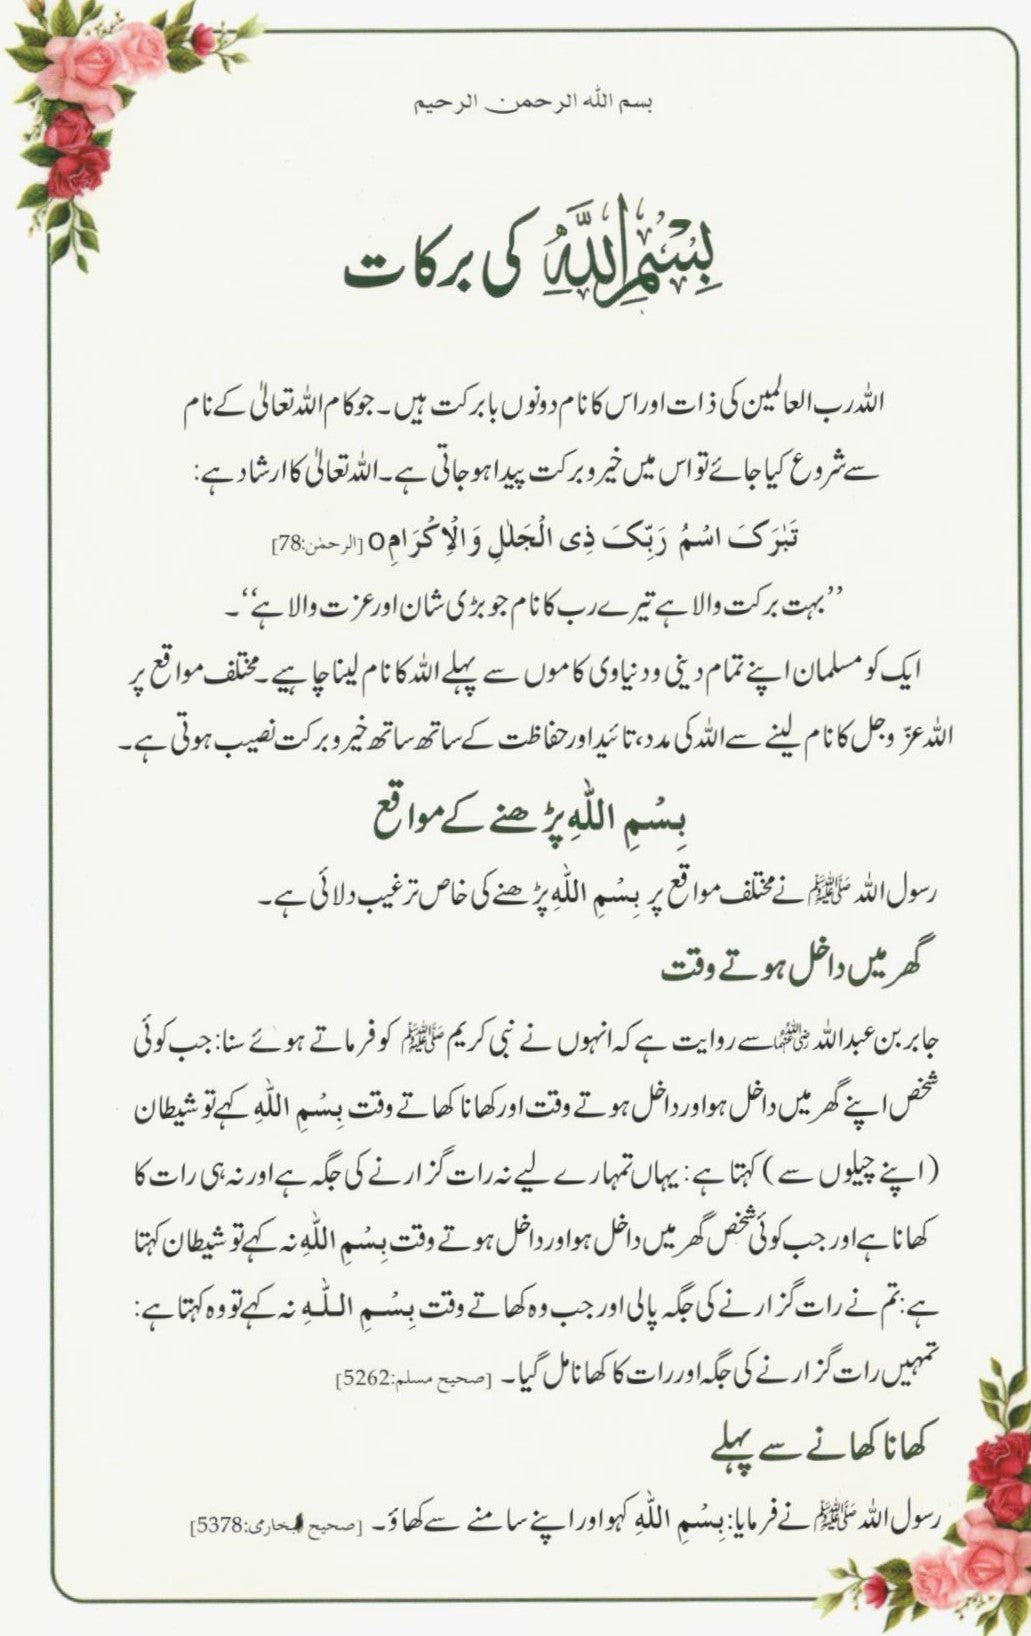 بسم الله الرحمن الرحيم
بِسْمِ اللّٰهِ کی برکات
اللہ رب العالمین کی ذات اور اس کا نام دونوں بابرکت ہیں۔ جو کام اللہ تعالیٰ کے نام
سے شروع کیا جائے تو اس میں خیر و برکت پیدا ہو جاتی ہے۔ اللہ تعالیٰ کا ارشاد ہے:
تَبٰرَکَ اسْمُ رَبِّکَ ذِی الْجَلٰلِ وَ الْاِکْرَامِ o [الرحمٰن:78]
’’بہت برکت والا ہے تیرے رب کا نام جو بڑی شان اور عزت والا ہے‘‘۔
ایک کو مسلمان اپنے تمام دینی و دنیاوی کاموں سے پہلے اللہ کا نام لینا چاہیے۔ مختلف مواقع پر
اللہ عزّ وجل کا نام لینے سے اللہ کی مدد، تائید اور حفاظت کے ساتھ ساتھ خیر و برکت نصیب ہوتی ہے۔
بِسْمِ اللّٰهِ پڑھنے کے مواقع
رسول اللہ ﷺ نے مختلف مواقع پر بِسْمِ اللّٰهِ پڑھنے کی خاص ترغیب دلائی ہے۔
گھر میں داخل ہوتے وقت
جابر بن عبداللہ رضی اللہ عنہما سے روایت ہے کہ انہوں نے نبی کریم ﷺ کو فرماتے ہوئے سنا: جب کوئی
شخص اپنے گھر میں داخل ہو اور داخل ہوتے وقت اور کھانا کھاتے وقت بِسْمِ اللّٰهِ کہے تو شیطان
(اپنے چیلوں سے) کہتا ہے: یہاں تمہارے لیے نہ رات گزارنے کی جگہ ہے اور نہ ہی رات کا
کھانا ہے اور جب کوئی شخص گھر میں داخل ہو اور داخل ہوتے وقت بِسْمِ اللّٰهِ نہ کہے تو شیطان کہتا
ہے: تم نے رات گزارنے کی جگہ پالی اور جب وہ کھاتے وقت بِسْمِ اللّٰهِ نہ کہے تو وہ کہتا ہے:
تمہیں رات گزارنے کی جگہ اور رات کا کھانا مل گیا۔ [صحیح مسلم:5262]
کھانا کھانے سے پہلے
رسول اللہ ﷺ نے فرمایا: بِسْمِ اللّٰهِ کہو اور اپنے سامنے سے کھاؤ۔ [صحیح بخاری:5378]